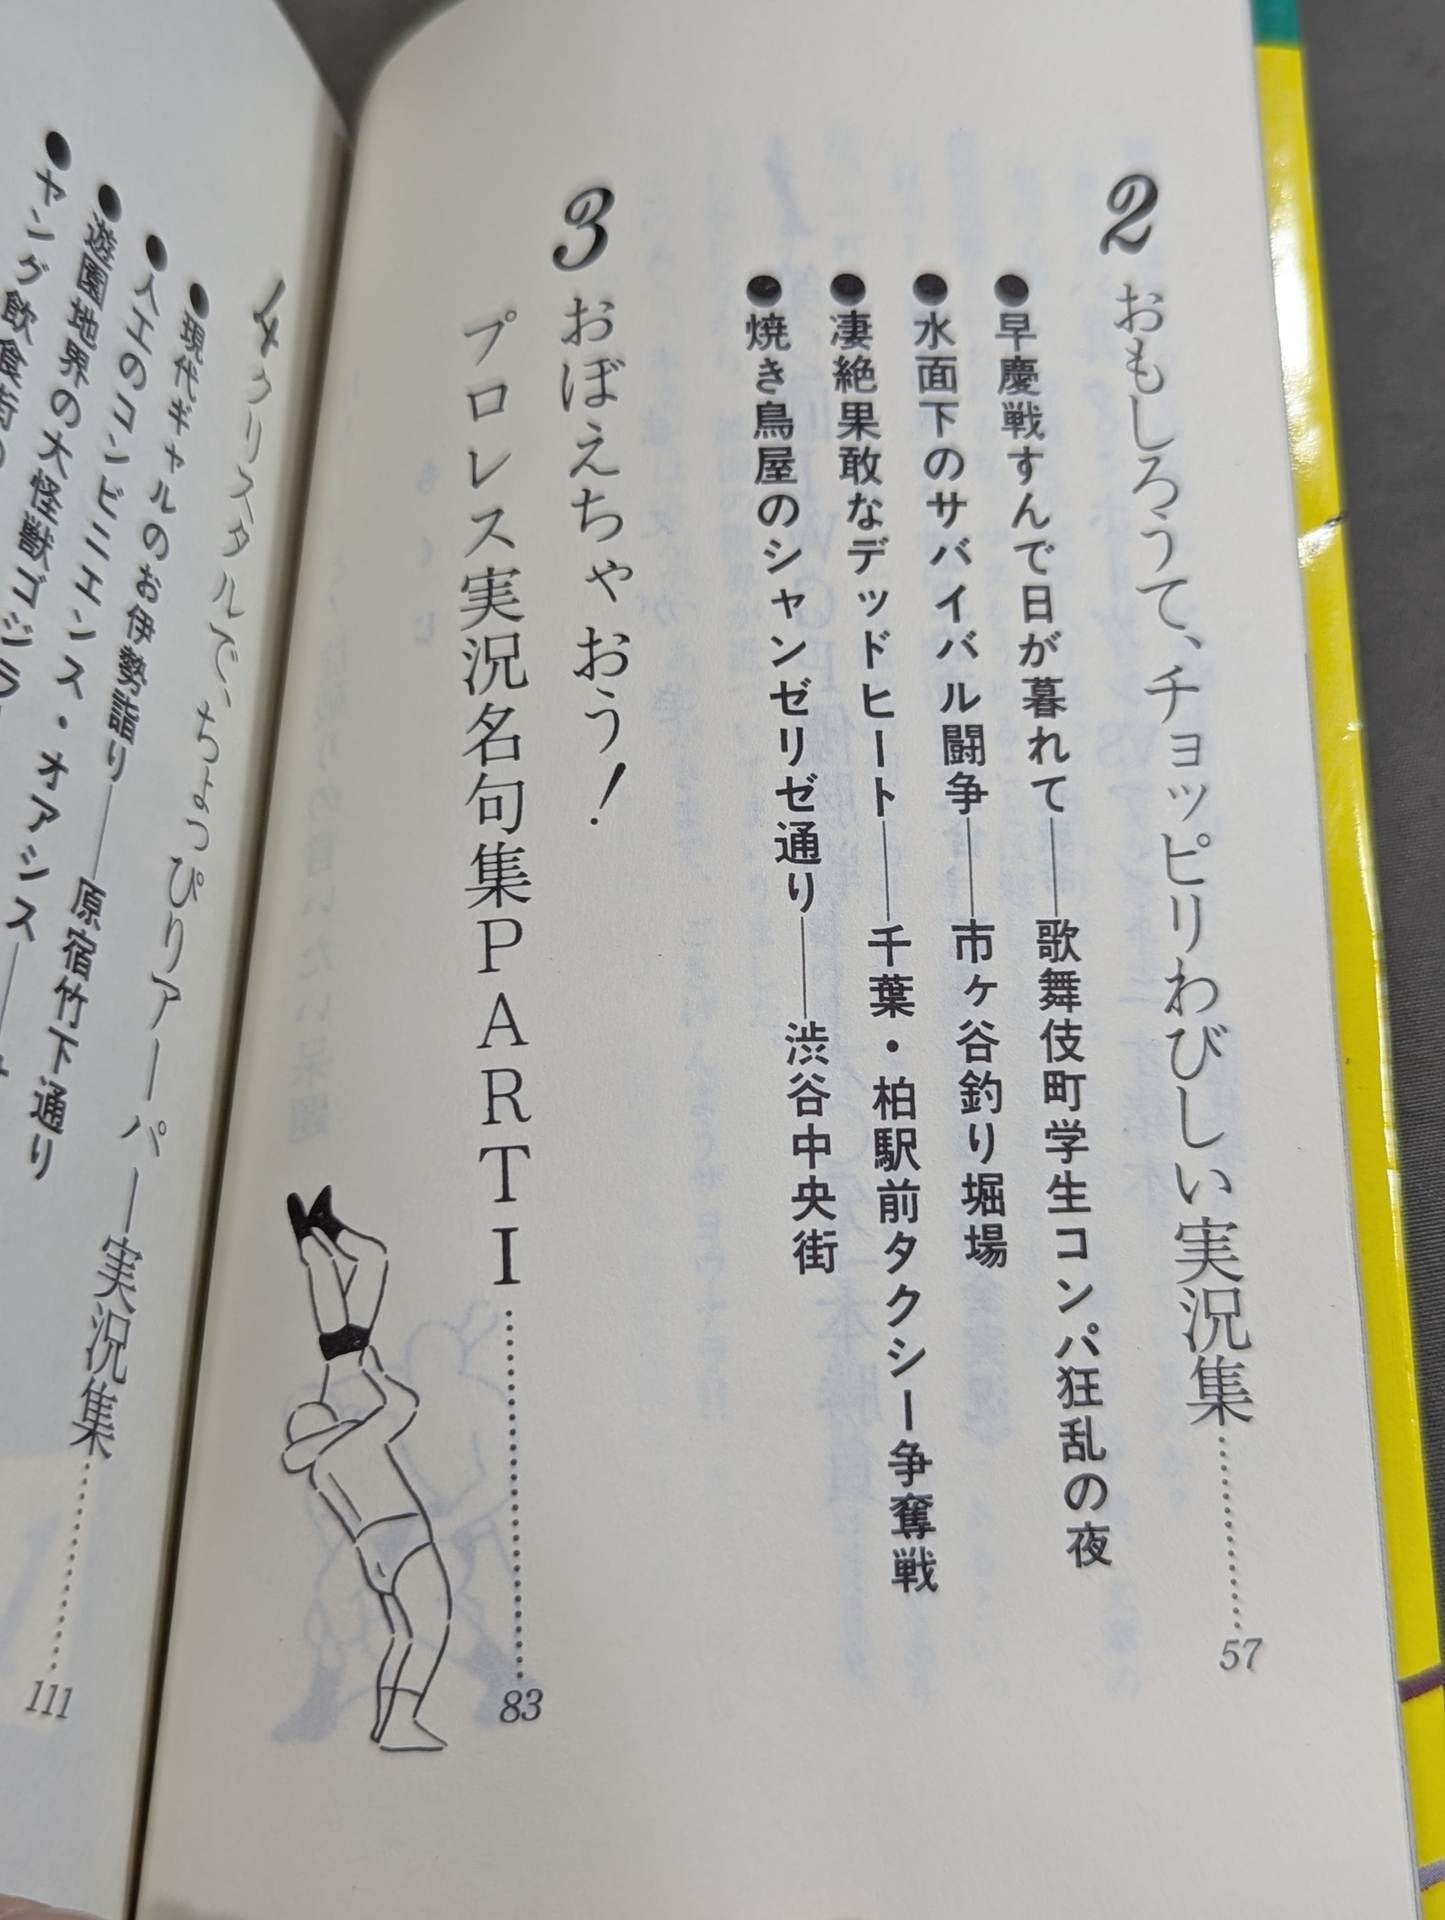 2 おもしろうて、チョッピリわびしい実況集……57
●早慶戦すんで日が暮れて——歌舞伎町学生コンパ狂乱の夜
●水面下のサバイバル闘争——市ヶ谷釣り堀場
●凄絶果敢なデッドヒート——千葉・柏駅前タクシー争奪戦
●焼き鳥屋のシャンゼリゼ通り——渋谷中央街
3 おぼえちゃおう!
プロレス実況名句集PARTI……83
4 クリスタルで、ちょっぴりアーパー実況集……111
●現代ギャルのお伊勢詣り——原宿竹下通り
●人工のコンビニエンス・オアシス——
●遊園地界の大怪獣ゴジラ
●ヤング飲食街の